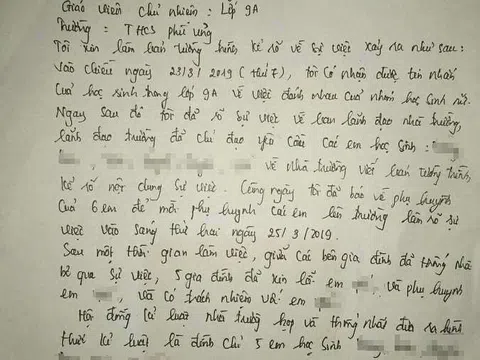 Giáo viên chủ nhiệm: Lớp 9A
Trường: THCS phù ủng
Tôi xin làm bản tường trình kể rõ về sự việc xảy ra như sau:
Vào chiều ngày 23/3/2019 (thứ 7), tôi có nhận được tin nhắn
Của học sinh trong lớp 9A về việc đánh nhau của nhóm học sinh nữ.
Ngay sau đó tôi đã rõ sự việc về ban lãnh đạo nhà trường,
lãnh đạo trường đã chỉ đạo yêu cầu các em học sinh:
về nhà trường viết bản tường trình
kể rõ nội dung sự việc. Cùng ngày tôi đã báo về phụ huynh
Của 6 em để mời phụ huynh các em lên trường làm rõ sự
việc vào sáng thứ hai ngày 25/3/2019.
Sau một thời gian làm việc, giữa các bên gia đình đã thống nhất
bỏ qua sự việc, 5 gia đình đã xin lỗi em và phụ huynh
em , và có trách nhiệm với em
Hội đồng kỉ luật nhà trường họp và thống nhất đưa ra hình
thức kỉ luật là đình chỉ 5 em học sinh